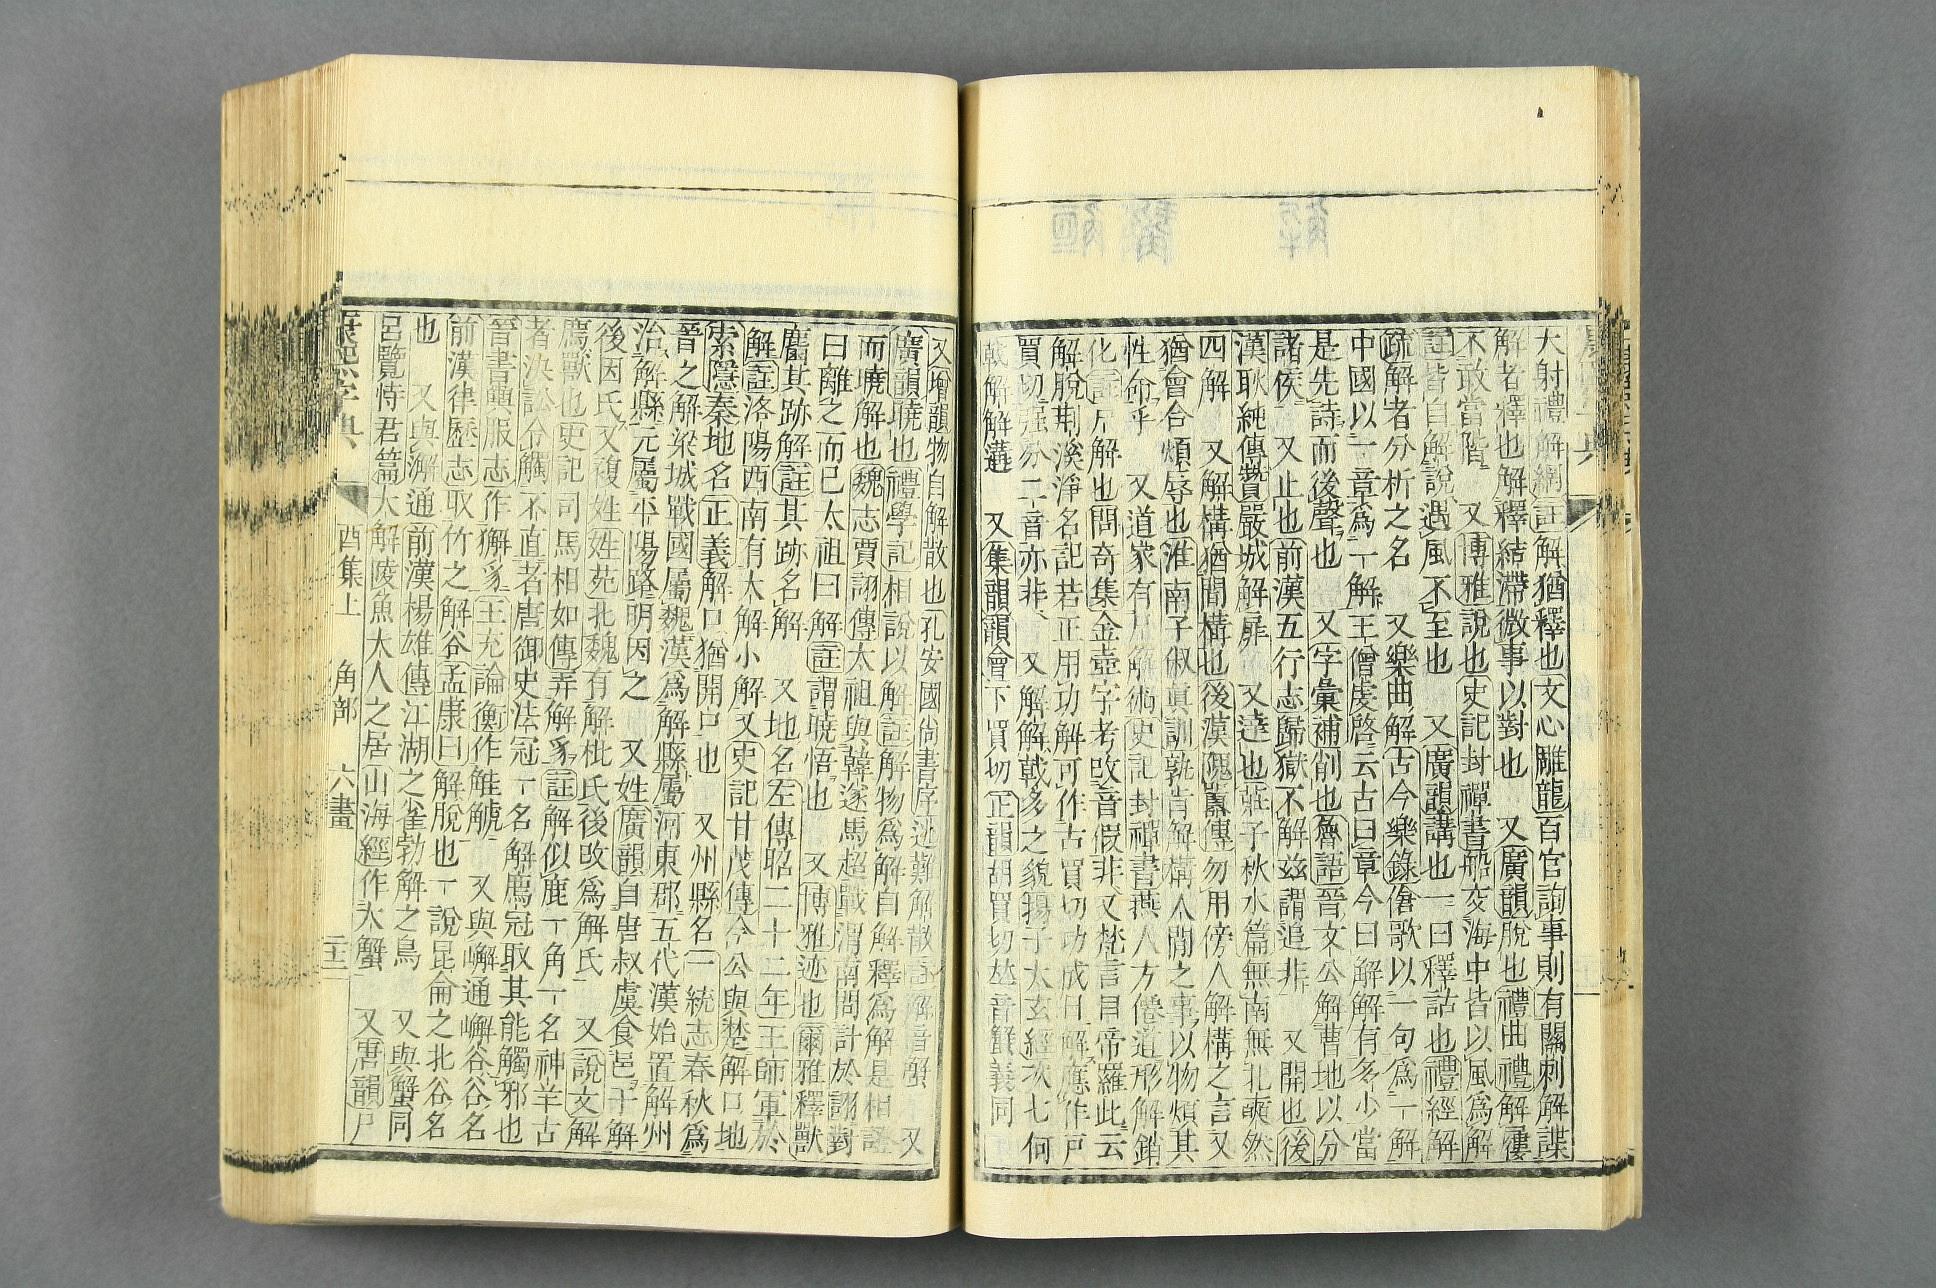 大射禮解綱註解猶釋也文心雕龍百官詢事則有關刺解諜
解者釋也解釋結滯徵事以對也　又廣韻脫也禮曲禮解屨
不敢當階　又博雅說也史記封禪書船交海中皆以風爲解
註皆自解說遇風不至也　又廣韻講也一曰釋詁也禮經解
疏解者分析之名　又樂曲解古今樂錄傖歌以一句爲一解
中國以一章爲一解王僧虔啓云古曰章今曰解解有多少當
是先詩而後聲也　又字彙補削也魯語晉文公解曹地以分
諸侯　又止也前漢五行志歸獄不解兹謂追非　又開也後
漢耿純傳贊嚴城解扉　又達也莊子秋水篇無南無北奭然
四解　又解構猶間構也後漢隗囂傳勿用傍人解構之言又
猶會合煩辱也淮南子俶眞訓孰肯解構人閒之事以物煩其
性命乎　又道家有尸解術史記封禪書燕人方僊道形解銷
化註尸解也問奇集金壺字考攺音假非又梵言目帝羅此云
解脫荆溪淨名記若正用功解可作古買切功成曰解應作戸
買切强分二音亦非　又解解戟多之貌揚子太玄經次七何
戟解解遘　又集韻韻會下買切正韻胡買切𠀤音蟹義同
又增韻物自解散也孔安國尚書序逃難解散註解音蟹　又
廣韻曉也禮學記相說以解註解物爲解自解釋爲解是相證
而曉解也魏志賈詡傳太祖與韓遂馬超戰渭南問計於詡對
曰離之而已太祖曰解註謂曉悟也　又博雅迹也爾雅釋獸
麕其跡解註其跡名解　又地名左傳昭二十二年王師軍於
解註洛陽西南有大解小解又史記甘茂傳今公與楚解口地
索隱秦地名正義解口猶開口也　又州縣名一統志春秋爲
晉之解梁城戰國屬魏漢爲解縣屬河東郡五代漢始置解州
治解縣元屬平陽路明因之　又姓廣韻自唐叔虞食邑于解
後因氏又複姓姓苑北魏有解枇氏後攺爲解氏　又說文解
廌獸也史記司馬相如傳弄解豸註解似鹿一角一名神羊古
者決訟令觸不直者唐御史法冠一名解廌冠取其能觸邪也
晉書輿服志作獬豸王充論衡作觟䚦　又與嶰通嶰谷谷名
前漢律歷志取竹之解谷孟康曰解脫也一說昆侖之北谷名
也　又與澥通前漢楊雄傳江湖之雀勃解之鳥　又與蟹同
呂覽恃君篇大解陵魚大人之居山海經作大蟹　又唐韻戸
康熙字典　酉集上　角部　六畫